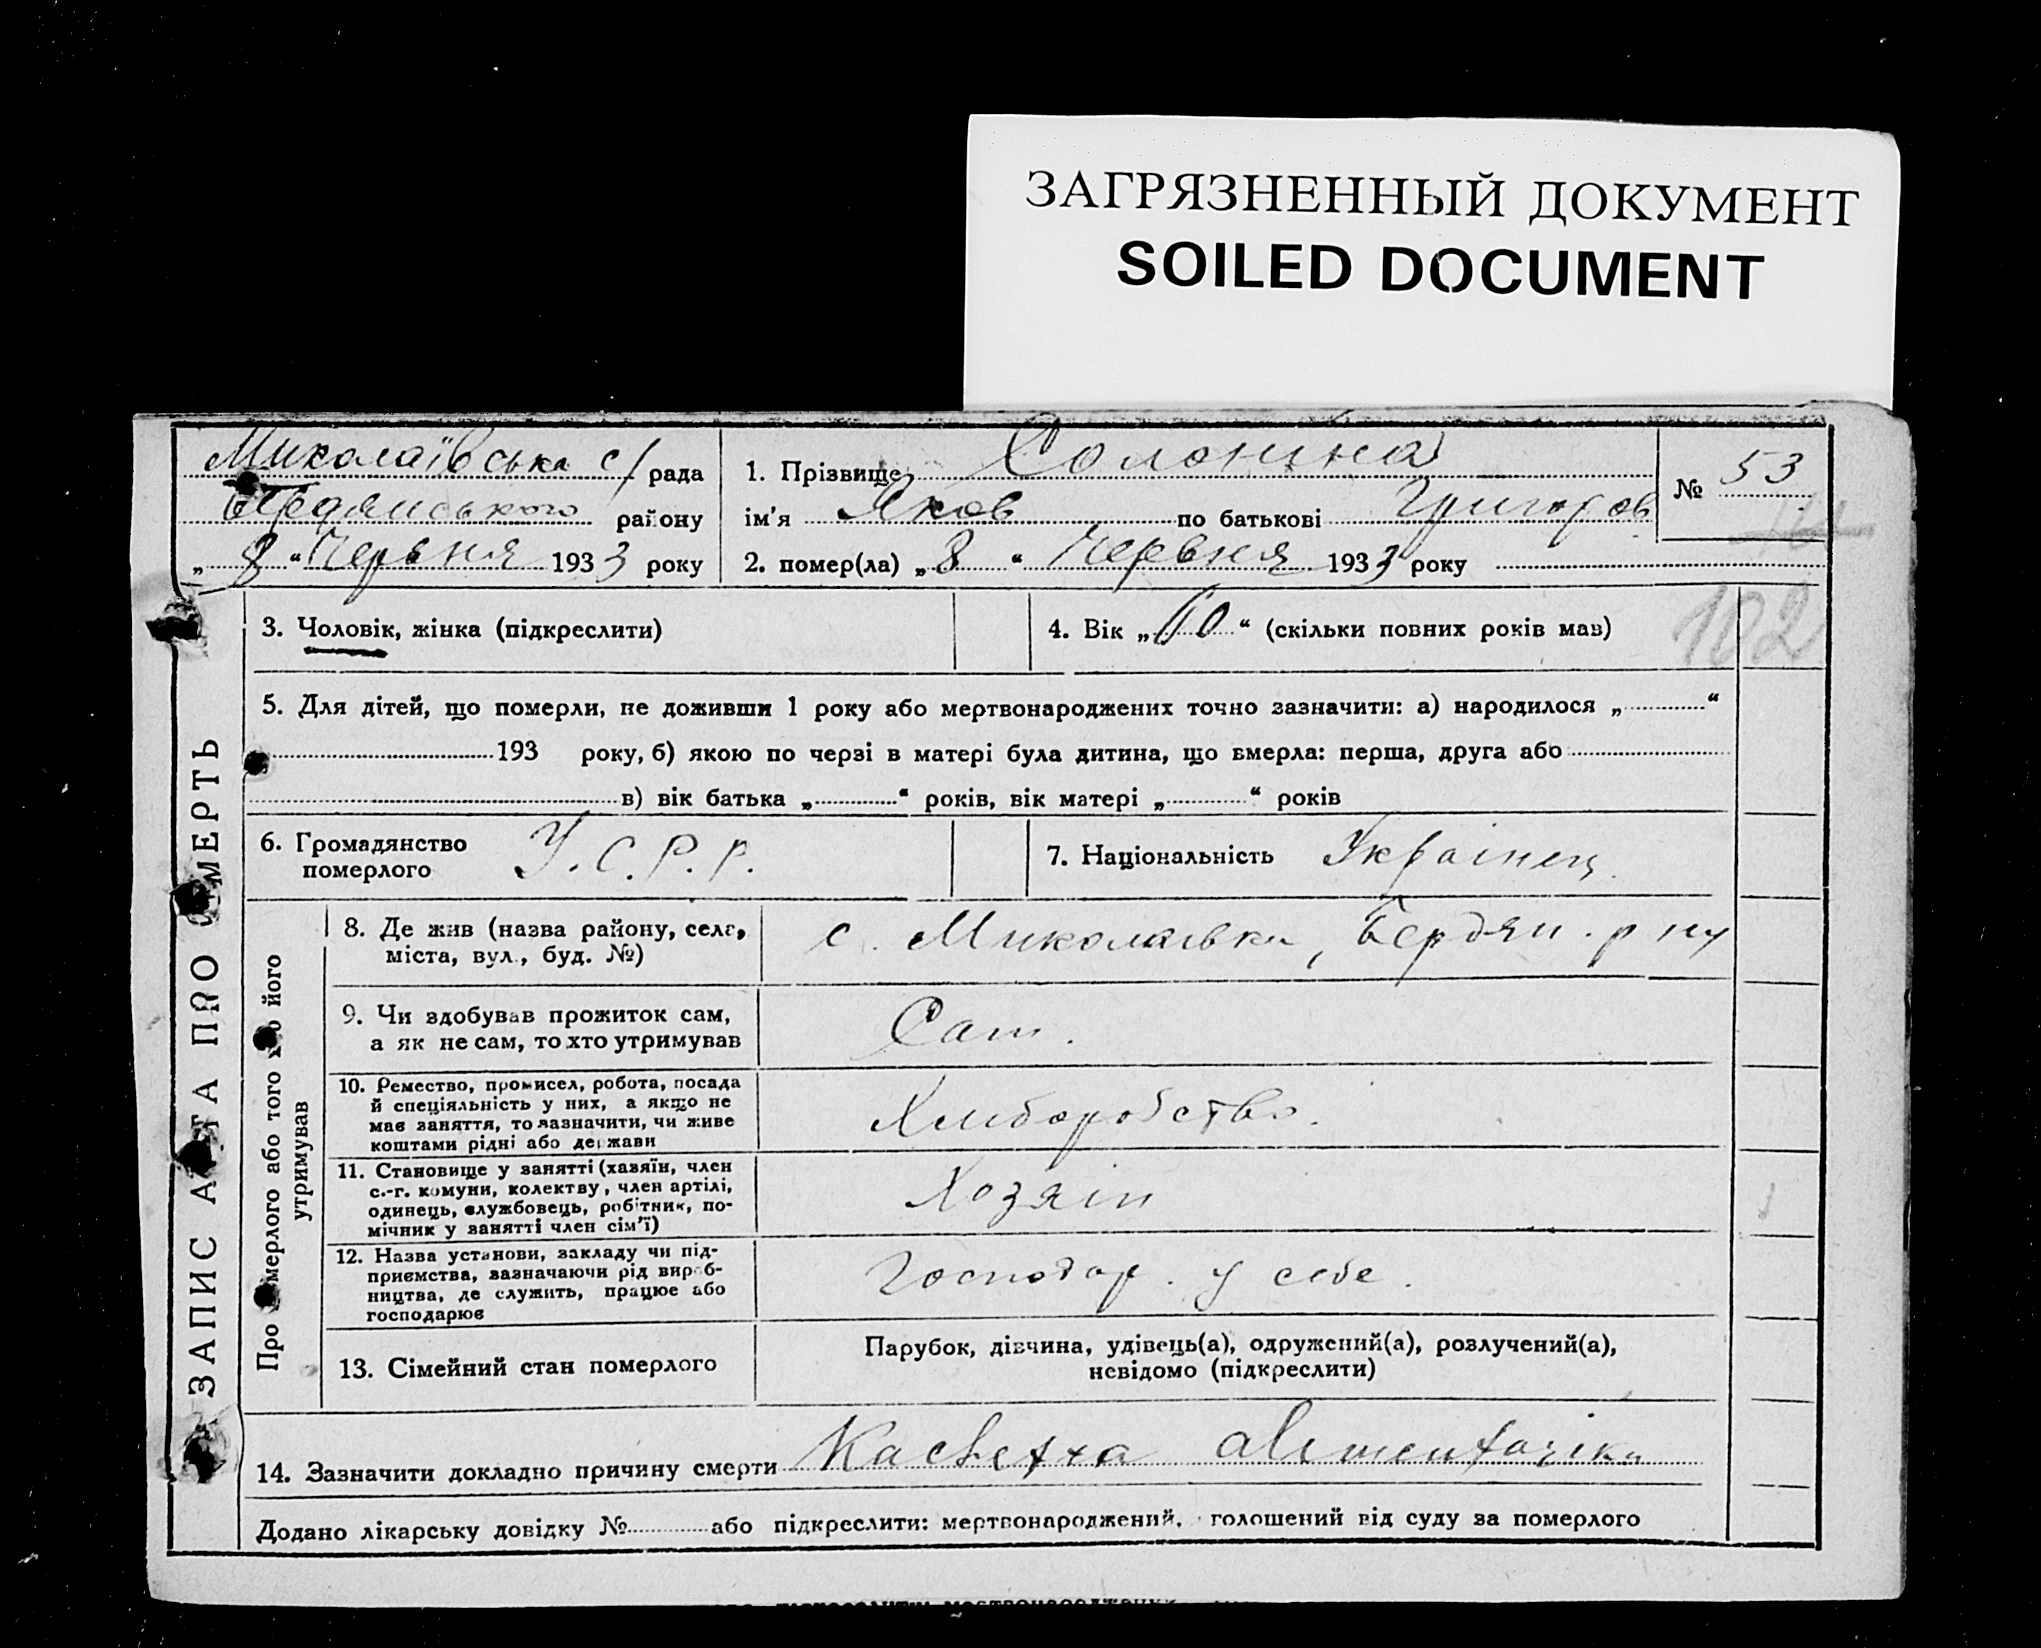 ЗАГРЯЗНЕННЫЙ ДОКУМЕНТ
SOILED DOCUMENT
Миколаївська с/рада
Бердянського району
„8“ Червня 1933 року
1. Прізвище Солонина
ім'я Яков по батькові Григоров
2. помер(ла) „8“ Червня 1933 року
№ 53
102
ЗАПИС АКТА ПРО СМЕРТЬ
3. Чоловік, жінка (підкреслити)
4. Вік „60“ (скільки повних років мав)
5. Для дітей, що померли, не доживши 1 року або мертвонароджених точно зазначити: а) народилося „ “
193 року, б) якою по черзі в матері була дитина, що вмерла: перша, друга або
в) вік батька „ “ років, вік матері „ “ років
6. Громадянство
померлого
У.С.Р.Р.
7. Національність Українец.
Про померлого або того хто його
утримував
8. Де жив (назва району, села,
міста, вул., буд. №)
с. Миколаівка, Бердян. р ну
9. Чи здобував прожиток сам,
а як не сам, то хто утримував
Сам.
10. Ремество, промисел, робота, посада
й спеціяльність у них, а якщо не
має заняття, то зазначити, чи живе
коштами рідні або держави
Хлиборобство.
11. Становище у занятті (хазяїн, член
с.-г. комуни, колектву, член артілі,
одинець, службовець, робітник, по-
мічник у занятті член сім'ї)
Хозяін
12. Назва установи, закладу чи під-
приємства, зазначаючи рід вироб-
ництва, де служить, працює або
господарює
Господар. у себе.
13. Сімейний стан померлого
Парубок, дівчина, удівець(а), одружений(а), розлучений(а),
невідомо (підкреслити)
14. Зазначити докладно причину смерти Kachexia alimentarika
Додано лікарську довідку № або підкреслити: мертвонароджений, голошений від суду за померлого